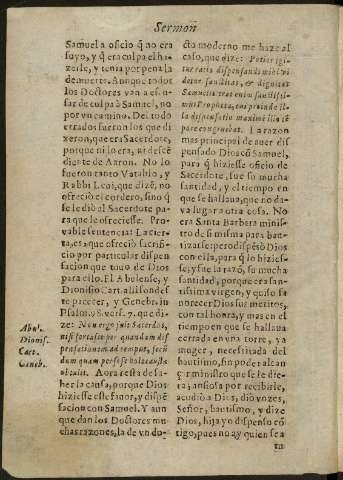 Sermon
Samuel a oficio q̃ no era
suyo, y q̃ era culpa el ha-
zerle, y tenia por pena la
de muerte. Aunque todos
los Doctores van a escu-
sar de culpa à Samuel, no
por vn camino. Del todo
errados fueron los que di
xeron, que era Sacerdote,
porque ni lo era, ni desce
diente de Aaron. No lo
fueron tanto Vatablo, y
Rabbi Leui, que dizẽ, no
ofreciò el cordero, sino q̃
se le diò al Sacerdote pa-
ra que le ofreciesse. Pro-
vable sentencia: La cier-
ta, es, que ofreciò sacrifi-
cio por particular dispen
sacion que tuuo de Dios
para ello. El Abulense, y
Dionisio Cart. alli son des
te parecer, y Genebr. in
Psalm. 98. vers. 7. que di-
ze: Non ergo fuit Sacerdos,
nisi fortasse per quandam dis
pensationem ad tempus, secũ
dum quam per se ipse holocausta
obtulit. Aora resta de sa-
ber la causa, porque Dios
hiziesse este fauor, y dispẽ
sacion con Samuel. Y aun
que dan los Doctores mu-
chas razones, la de vn do-
Abul.
Dionis.
Cart.
Geneb.
cto moderno me haze al
caso, que dize: Potior igi-
tur ratio dispensandi mihi vi
detur sanctitas, & dignitas
Samuelis: erat enim sanctissi-
mus Propheta, cui proinde il-
la dispensatio maxime illo tẽ
pore congruebat. La razon
mas principal de auer dis
pensado Dios cõ Samuel,
para q̃ hiziesse oficio de
Sacerdote, fue so mucha
santidad, y el tiempo en
que se hallaua, que no da-
va lugar a otra cosa. No
era Santa Barbera minis-
tro de si misma para bau-
tizarse: pero dispẽsò Dios
con ella, para q̃ lo hizies-
se; y fue la razõ, su mucha
santidad, porque era san-
tissima virgen, y quiso fa
norecer Dios sus meritos,
con tal honra, y mas en el
tiempo en que se hallaua
cerrada en vna torre, ya
muger, necessitada del
bautismo, sin poder alcan
ç̃r ministro que se le die-
ra; ansiosa por recibirle,
acudiò a Dios, diò vozes,
Señor, bautismo, y dize
Dios, hija yo dispenso cõ
tigo, pues no ay quien sea
tu